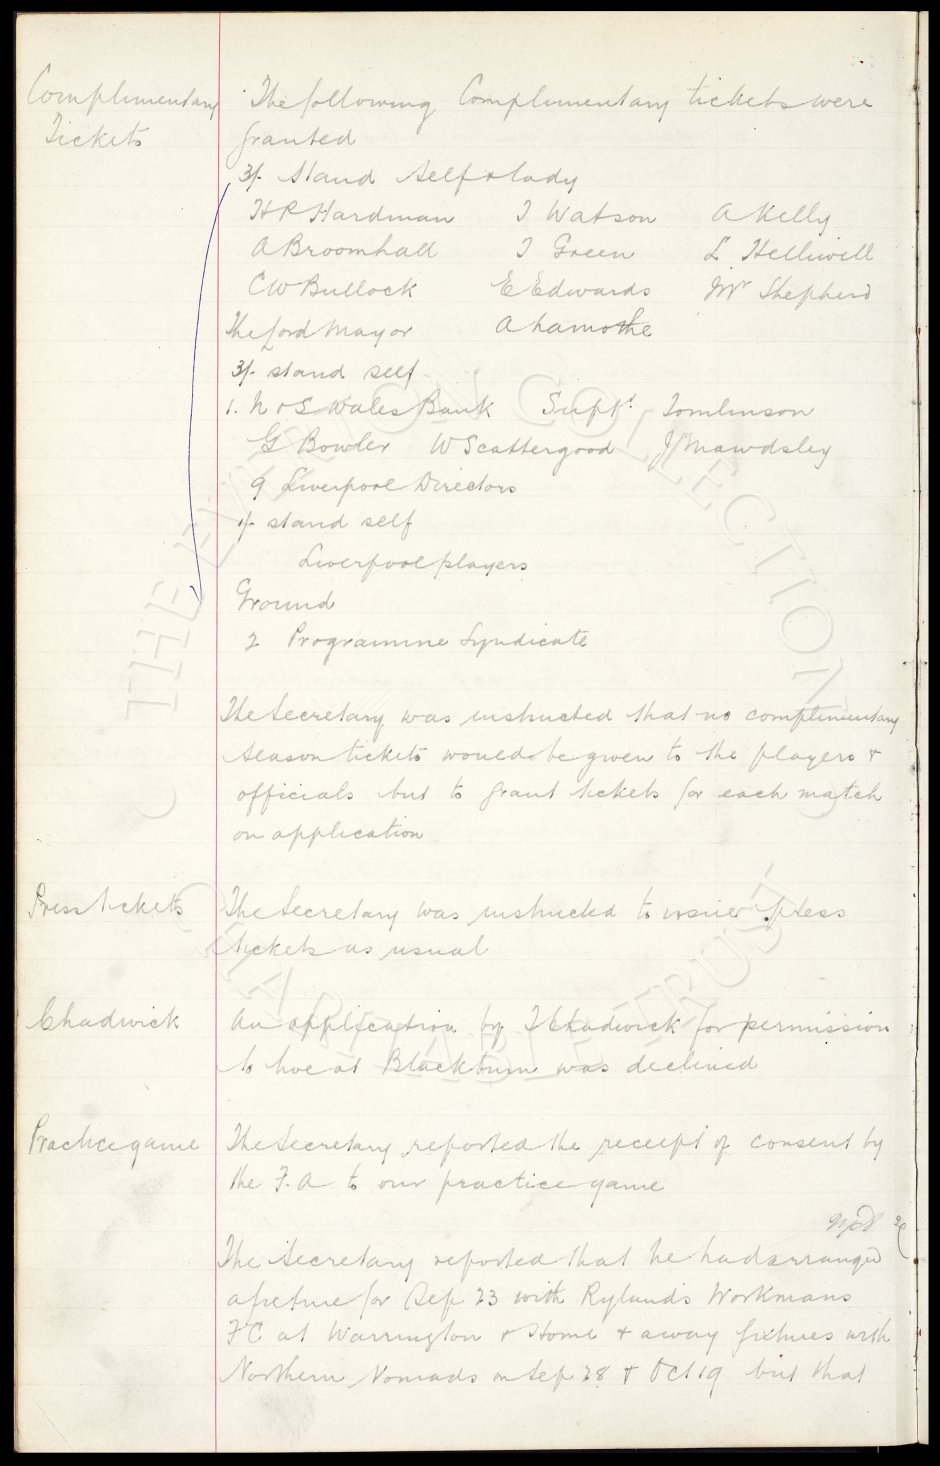 Complimentary Tickets
The following Complimentary tickets were
granted
3/- Stand Self & lady
H R Hardman T Watson A Kelly
A Broomhall T Green L Helliwell
C W Bullock E Edwards Mr Shepherd
The Lord Mayor A Lamothe
3/- stand self
1. N & S Wales Bank Supt. Tomlinson
G Bowler W Scattergood J Mawdsley
9 Liverpool Directors
1/- stand self
Liverpool players
Ground
2 Programme Syndicate
The Secretary was instructed that no complimentary
season tickets would be given to the players &
officials but to grant tickets for each match
on application
Press tickets
The Secretary was instructed to issue press
tickets as usual
Chadwick
An application by T Chadwick for permission
to live at Blackburn was declined
Practice game
The Secretary reported the receipt of consent by
the F.A to our practice game
The Secretary reported that he had arranged
a fixture for Sep 23 with Rylands Workmans
F C at Warrington & Home & away fixtures with
Northern Nomads on Sep 28 & Oct 19 but that
© THE EVERTON COLLECTION
CHARITABLE TRUST